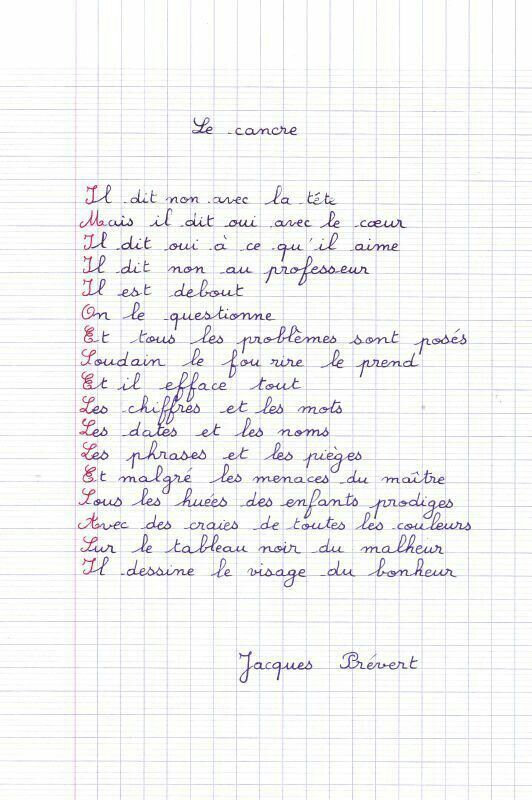 Le cancre
Il dit non avec la tête
Mais il dit oui avec le cœur
Il dit oui à ce qu'il aime
Il dit non au professeur
Il est debout
On le questionne
Et tous les problèmes sont posés
Soudain le fou rire le prend
Et il efface tout
Les chiffres et les mots
Les dates et les noms
Les phrases et les pièges
Et malgré les menaces du maître
Sous les huées des enfants prodiges
Avec des craies de toutes les couleurs
Sur le tableau noir du malheur
Il dessine le visage du bonheur
Jacques Prévert